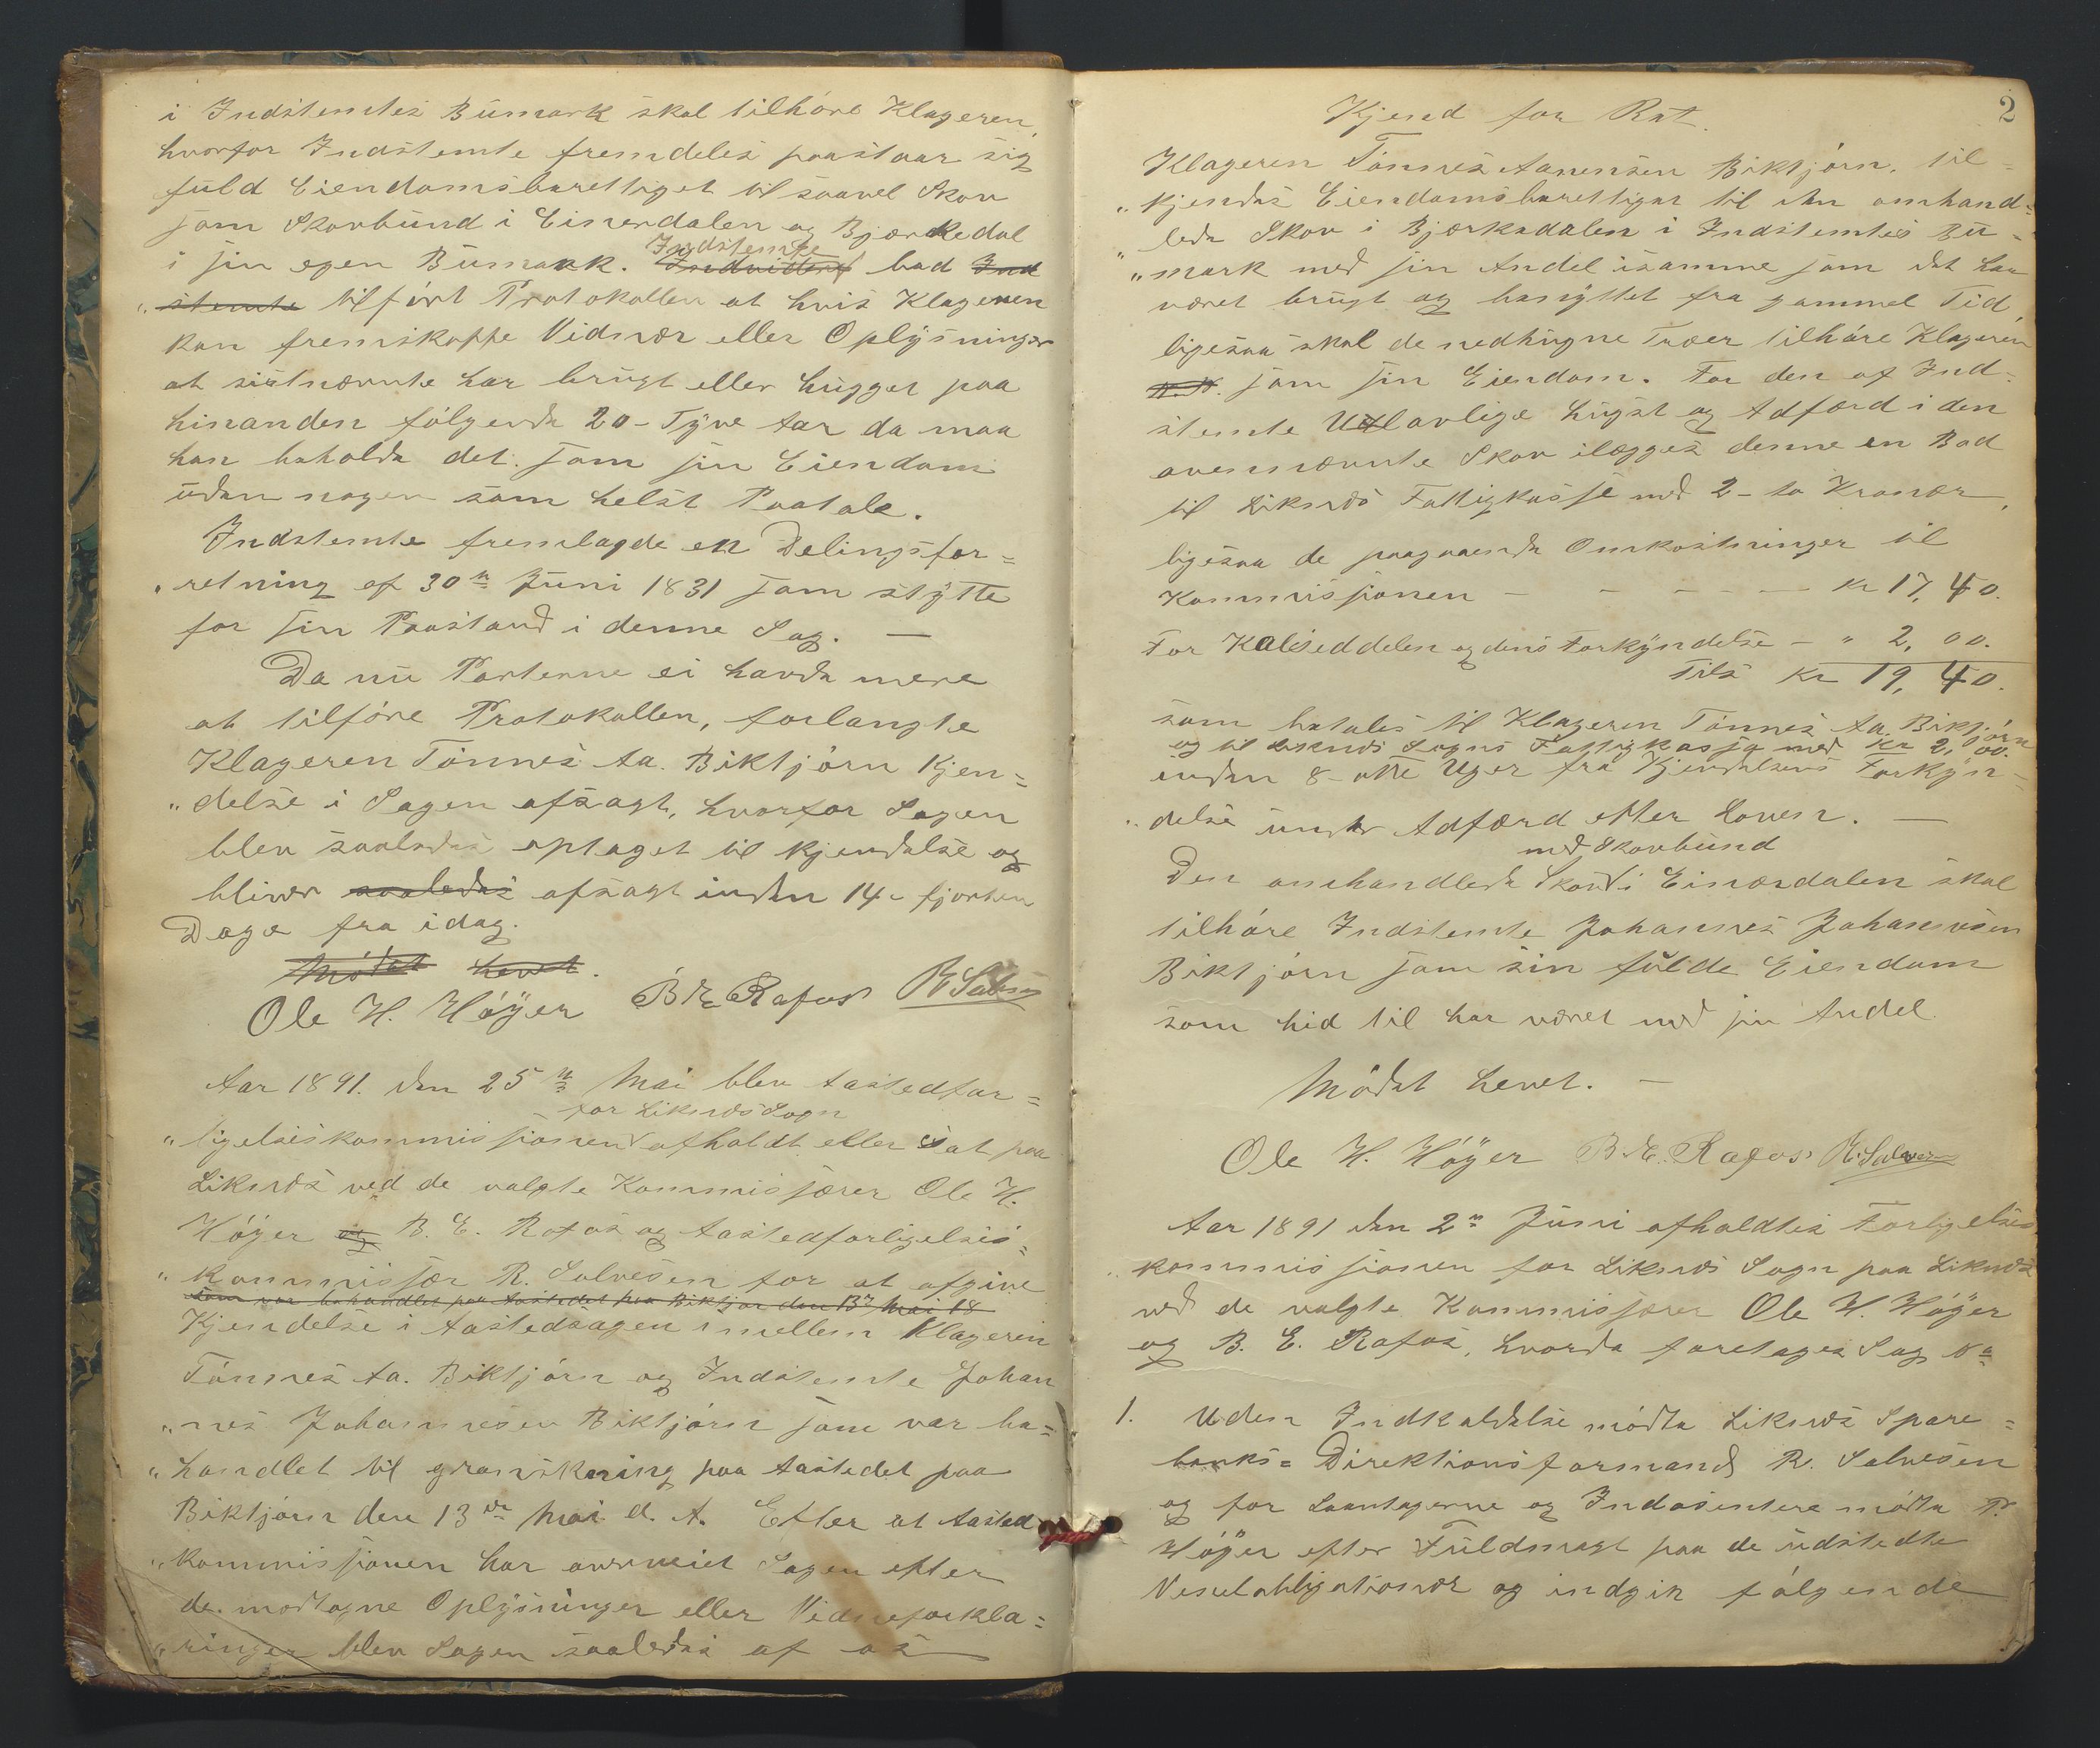 i Indstemtes Bümark skal tilhöre Klageren,
hvorfor Indstemte fremdeles paastaar sig
füld Eiendomsberettiget til saavel Skov
som Skovbünd i Einerdalen og Bjærkedal
Indstemte
i sin egen Bümark. bad Ind
stemte tilfört Protokollen at hvis Klageren
kan fremskaffe Vidner eller Oplÿsninger
at sistnævnte har brügt eller hügget paa
hinanden fölgende 20 - Tÿve Aar da maa
han beholde det som sin Eiendom
üden nogen som helst Paatale.
Indstemte fremlagde en Delingsfor=
"retning af 30te Jüni 1831 som stÿtte
for sin Paastand i denne Sag. —
Da nü Parterne ei havde mere
at tilföre Protokollen, forlangte
Klageren Tönnes Aa. Biktjörn Kjen=
"delse i Sagen afsagt, hvorfor Sagen
blev saaledes optaget til kjendelse og
bliver saaledes afsagt inden 14 - fjorten
Dage fra idag.
Mödet hevet.
Ole H. Höÿer B. E. Rafos R Salvesen
Aar 1891. den 25de Mai blev Aastedfor=
for Liknes Sogn
"ligelseskommissionen afholdt eller sat paa
Liknes ved de valgte Kommissærer Ole H.
Höÿer og B. E. Rafos og Aastedforligelses=
"kommissær R. Salvesen for at afgive
som var behandlet paa Aastedet paa Biktjør den 13de Mai 18
Kjendelse i Aastedsagen imellem Klageren
Tönnes Aa. Biktjörn og Indstemte Johan
"nes Johannesen Biktjörn som var be=
"handlet til granskning paa Aastedet paa
Biktjörn den 13de Mai d. A. Efter at Aasted
"kommissionen har overveiet Sagen efter
de modtagne Oplÿsninger eller Vidneforkla=
"ringer blev Sagen saaledes af os
2
Kjend for Ret.
Klageren Tönnes Aanensen Biktjörn, til=
"kjendes Eiendomsberettiget til den omhand=
lede Skov i Bjærkedalen i Indstemtes Bü=
"mark med sin Andel isamme som det har
været brügt og benÿttet fra gammel Tid,
ligesaa skal de nedhügne Træer tilhöre Klageren
som sin Eiendom. For den af Ind=
stemte Ulovlige hügst og Adfærd i den
ovennævnte Skov ilægges denne en Bod
til Liknes Fattigkasse med 2 - to Kroner,
ligesaa de paagaaende Omkostninger til
Kommissionen — — — — — Kr 17,40.
For Kalseddelen og dens Forkÿndelse — " 2,00.
Tils Kr 19,40.
som betales til Klageren Tönnes Aa. Biktjörn
og til Liknes Sogns Fattigkasse med Kr 2,00.
inden 8 - otte Uger fra Kjendelsens Forkÿn=
"delse ünder Adfærd efter Loven. —
med Skovbünd
Den omhandlede Skov i Einerdalen skal
tilhöre Indstemte Johannes Johannesen
Biktjörn som sin fülde Eiendom
som hid til har været med sin Andel.
Mödet hevet. —
Ole H. Höÿer B. E. Rafos R. Salvesen
Aar 1891 den 2n Jüni afholdtes Forligelses
kommissionen for Liknes Sogn paa Liknes
ved de valgte Kommissærer Ole H. Höÿer
og B. E. Rafos, hvorda foretages Sag No
1. Uden Indkaldelse mödte Liknes Spare=
banks= Direktionsformand R. Salvesen
og for Laantagerne og Indosentere mödte P.
Höÿer efter Füldmagt paa de üdstedte
Vexelobligationer og indgik fölgende